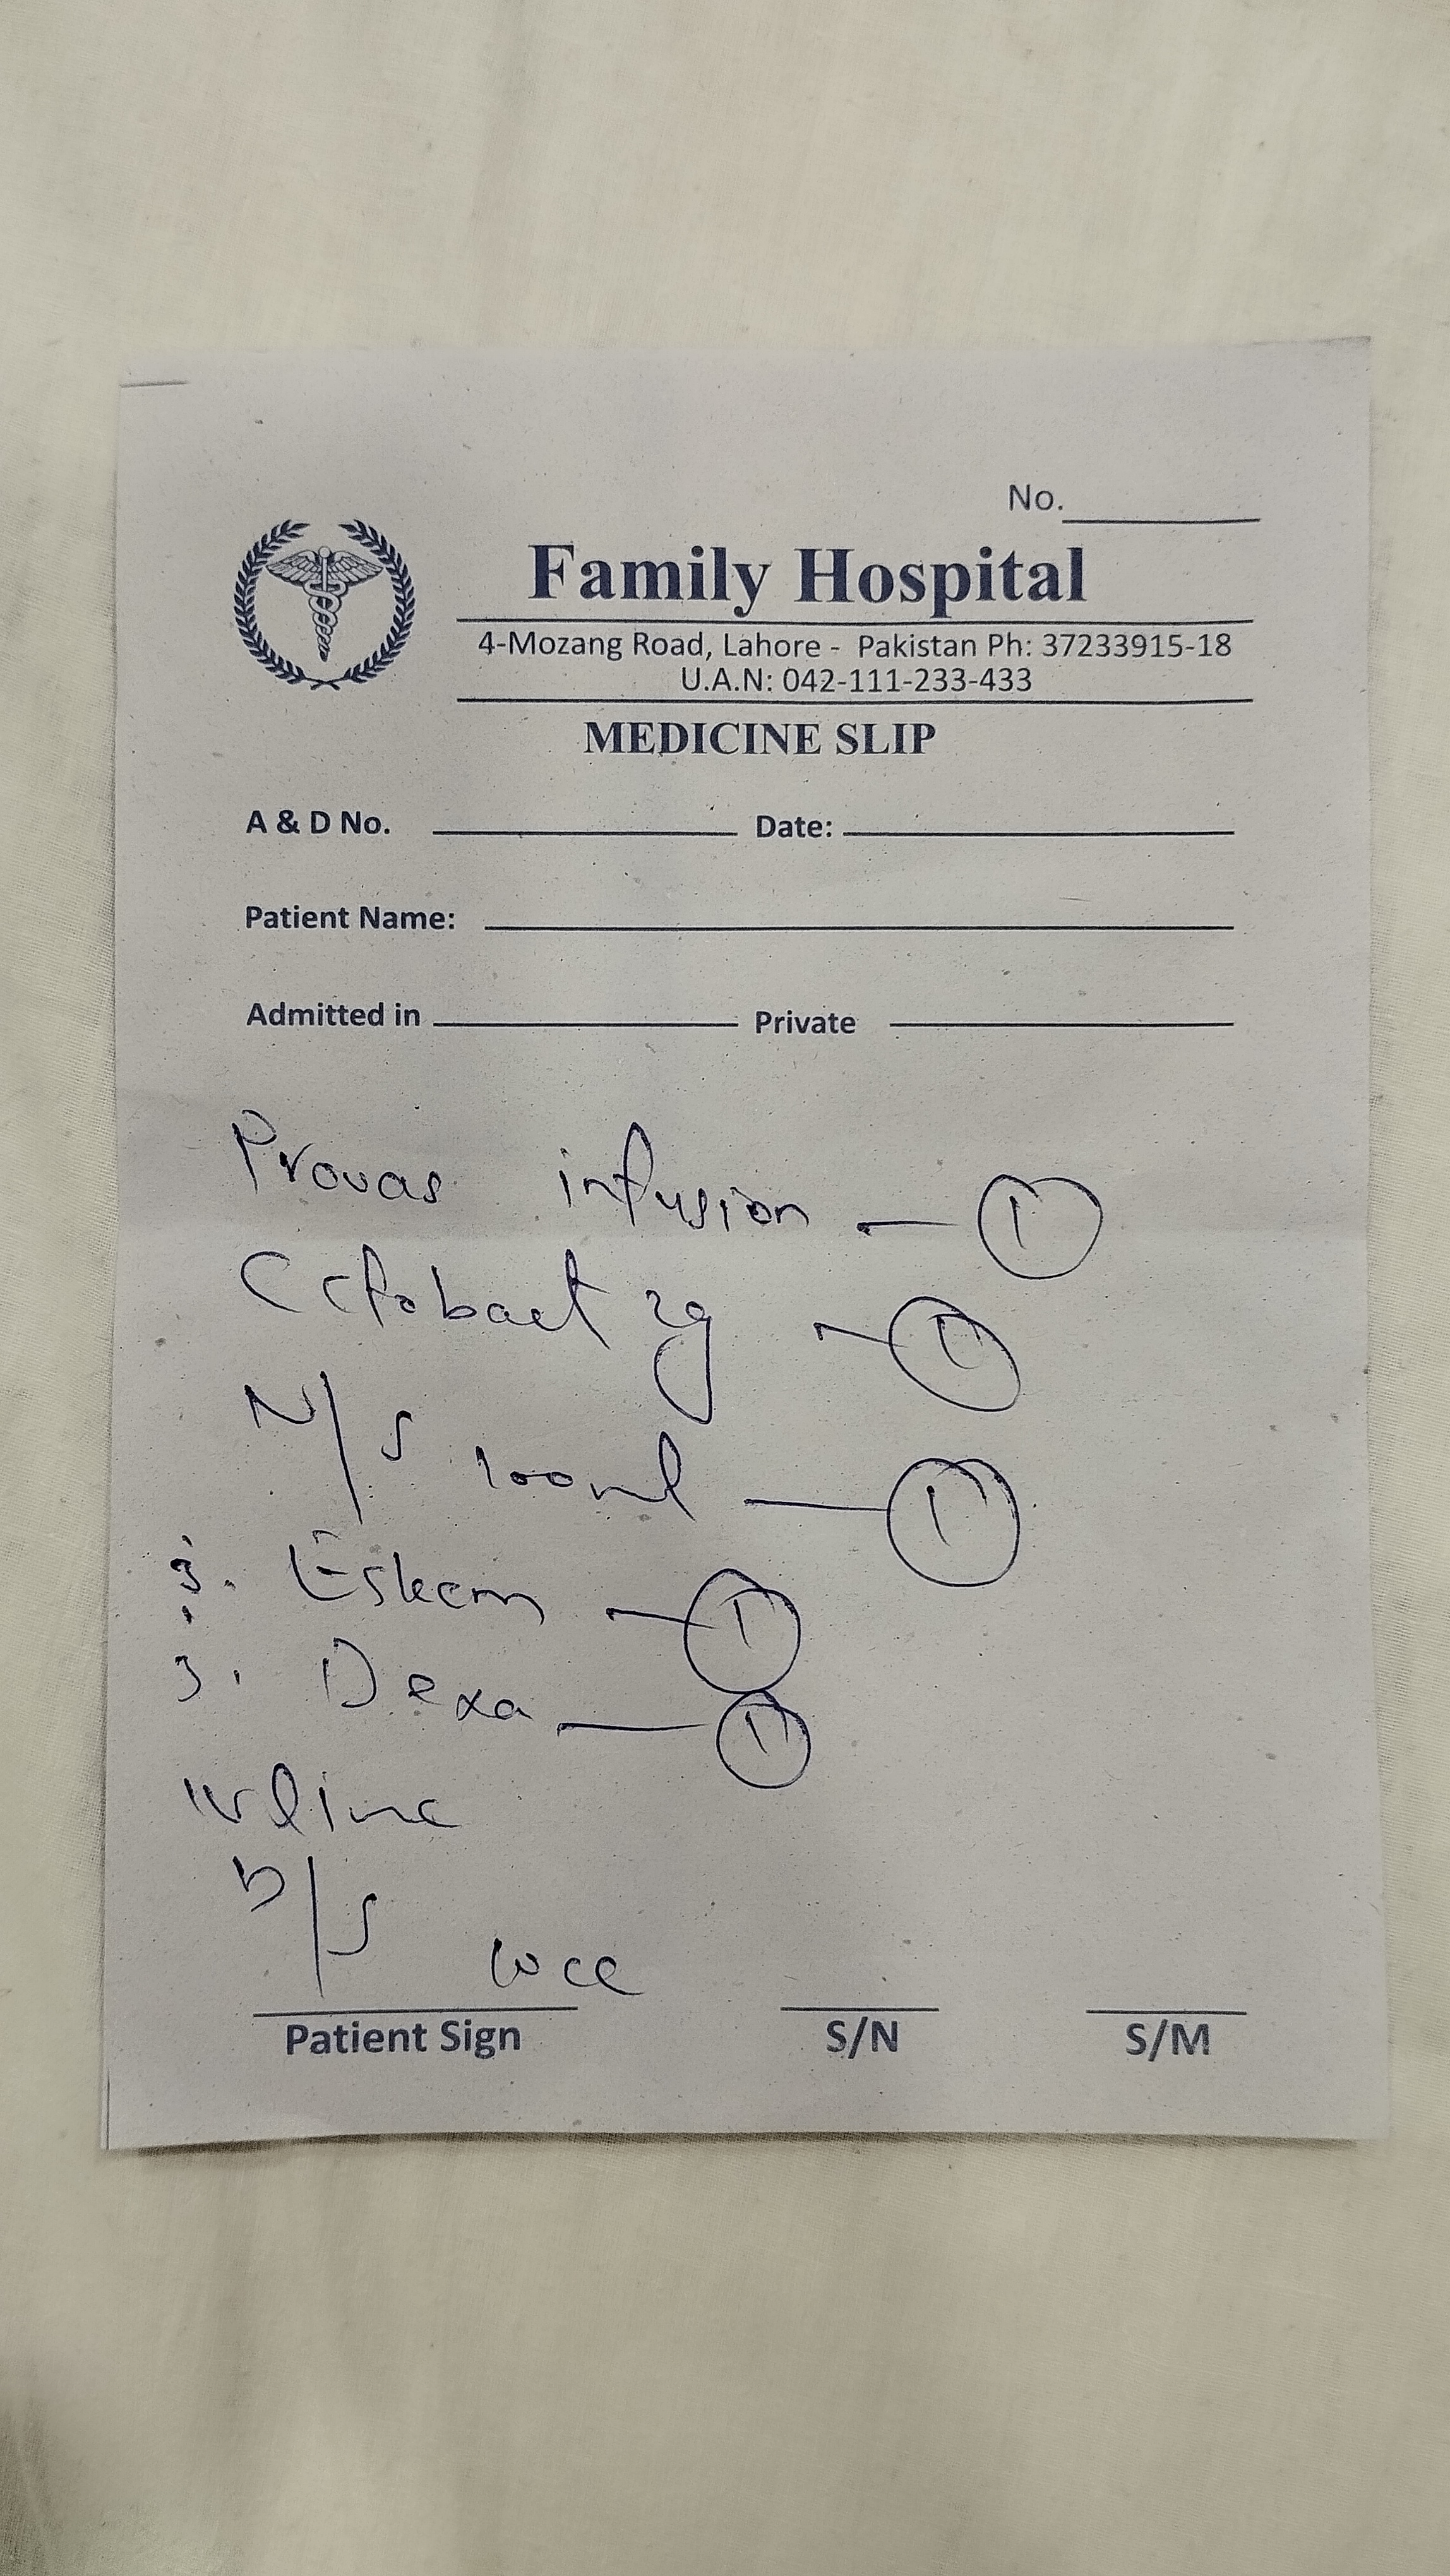 No.
Family Hospital
4-Mozang Road, Lahore - Pakistan Ph: 37233915-18
U.A.N: 042-111-233-433
MEDICINE SLIP
A & D No. Date:
Patient Name:
Admitted in Private
Provas infusion — 1
Cefobact 2g — 1
N/S 100ml — 1
Eskem — 1
Dexa — 1
IV line
D/S 10cc
Patient Sign S/N S/M